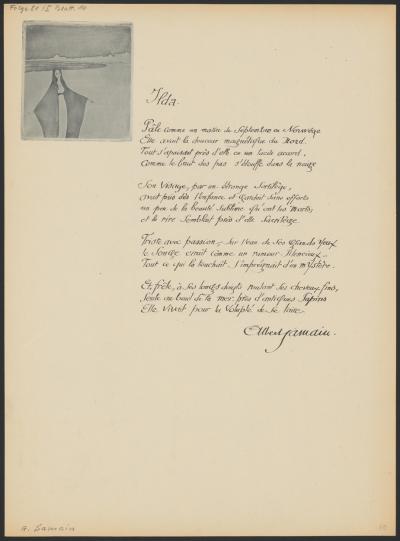 Folge II / 5 Blatt 10
Ilda.
Pâle comme un matin de Septembre en Norwège
Elle avait la douceur magnétique du Nord.
Tout s'apaisait près d'elle en un tacite accord,
Comme le bruit des pas s'étouffe dans la neige
Son visage, par un étrange Sortilège,
avait pris dès l'enfance et gardait sans efforts
un peu de la beauté sublime qu'ont les morts;
et le rire Semblait près d'elle Sacrilège
Triste avec passion, sur l'eau de ses grands yeux
le Songe errait comme un rameur Silencieux.
Tout ce qui la touchait, s'imprégnait d'un mystère.
Et frêle, à ses longs doigts roulant ses cheveux fins,
Seule au bord de la mer, près d'antiques Sapins
Elle vivait pour la Volupté de se taire
Albert Samain.
A. Samain